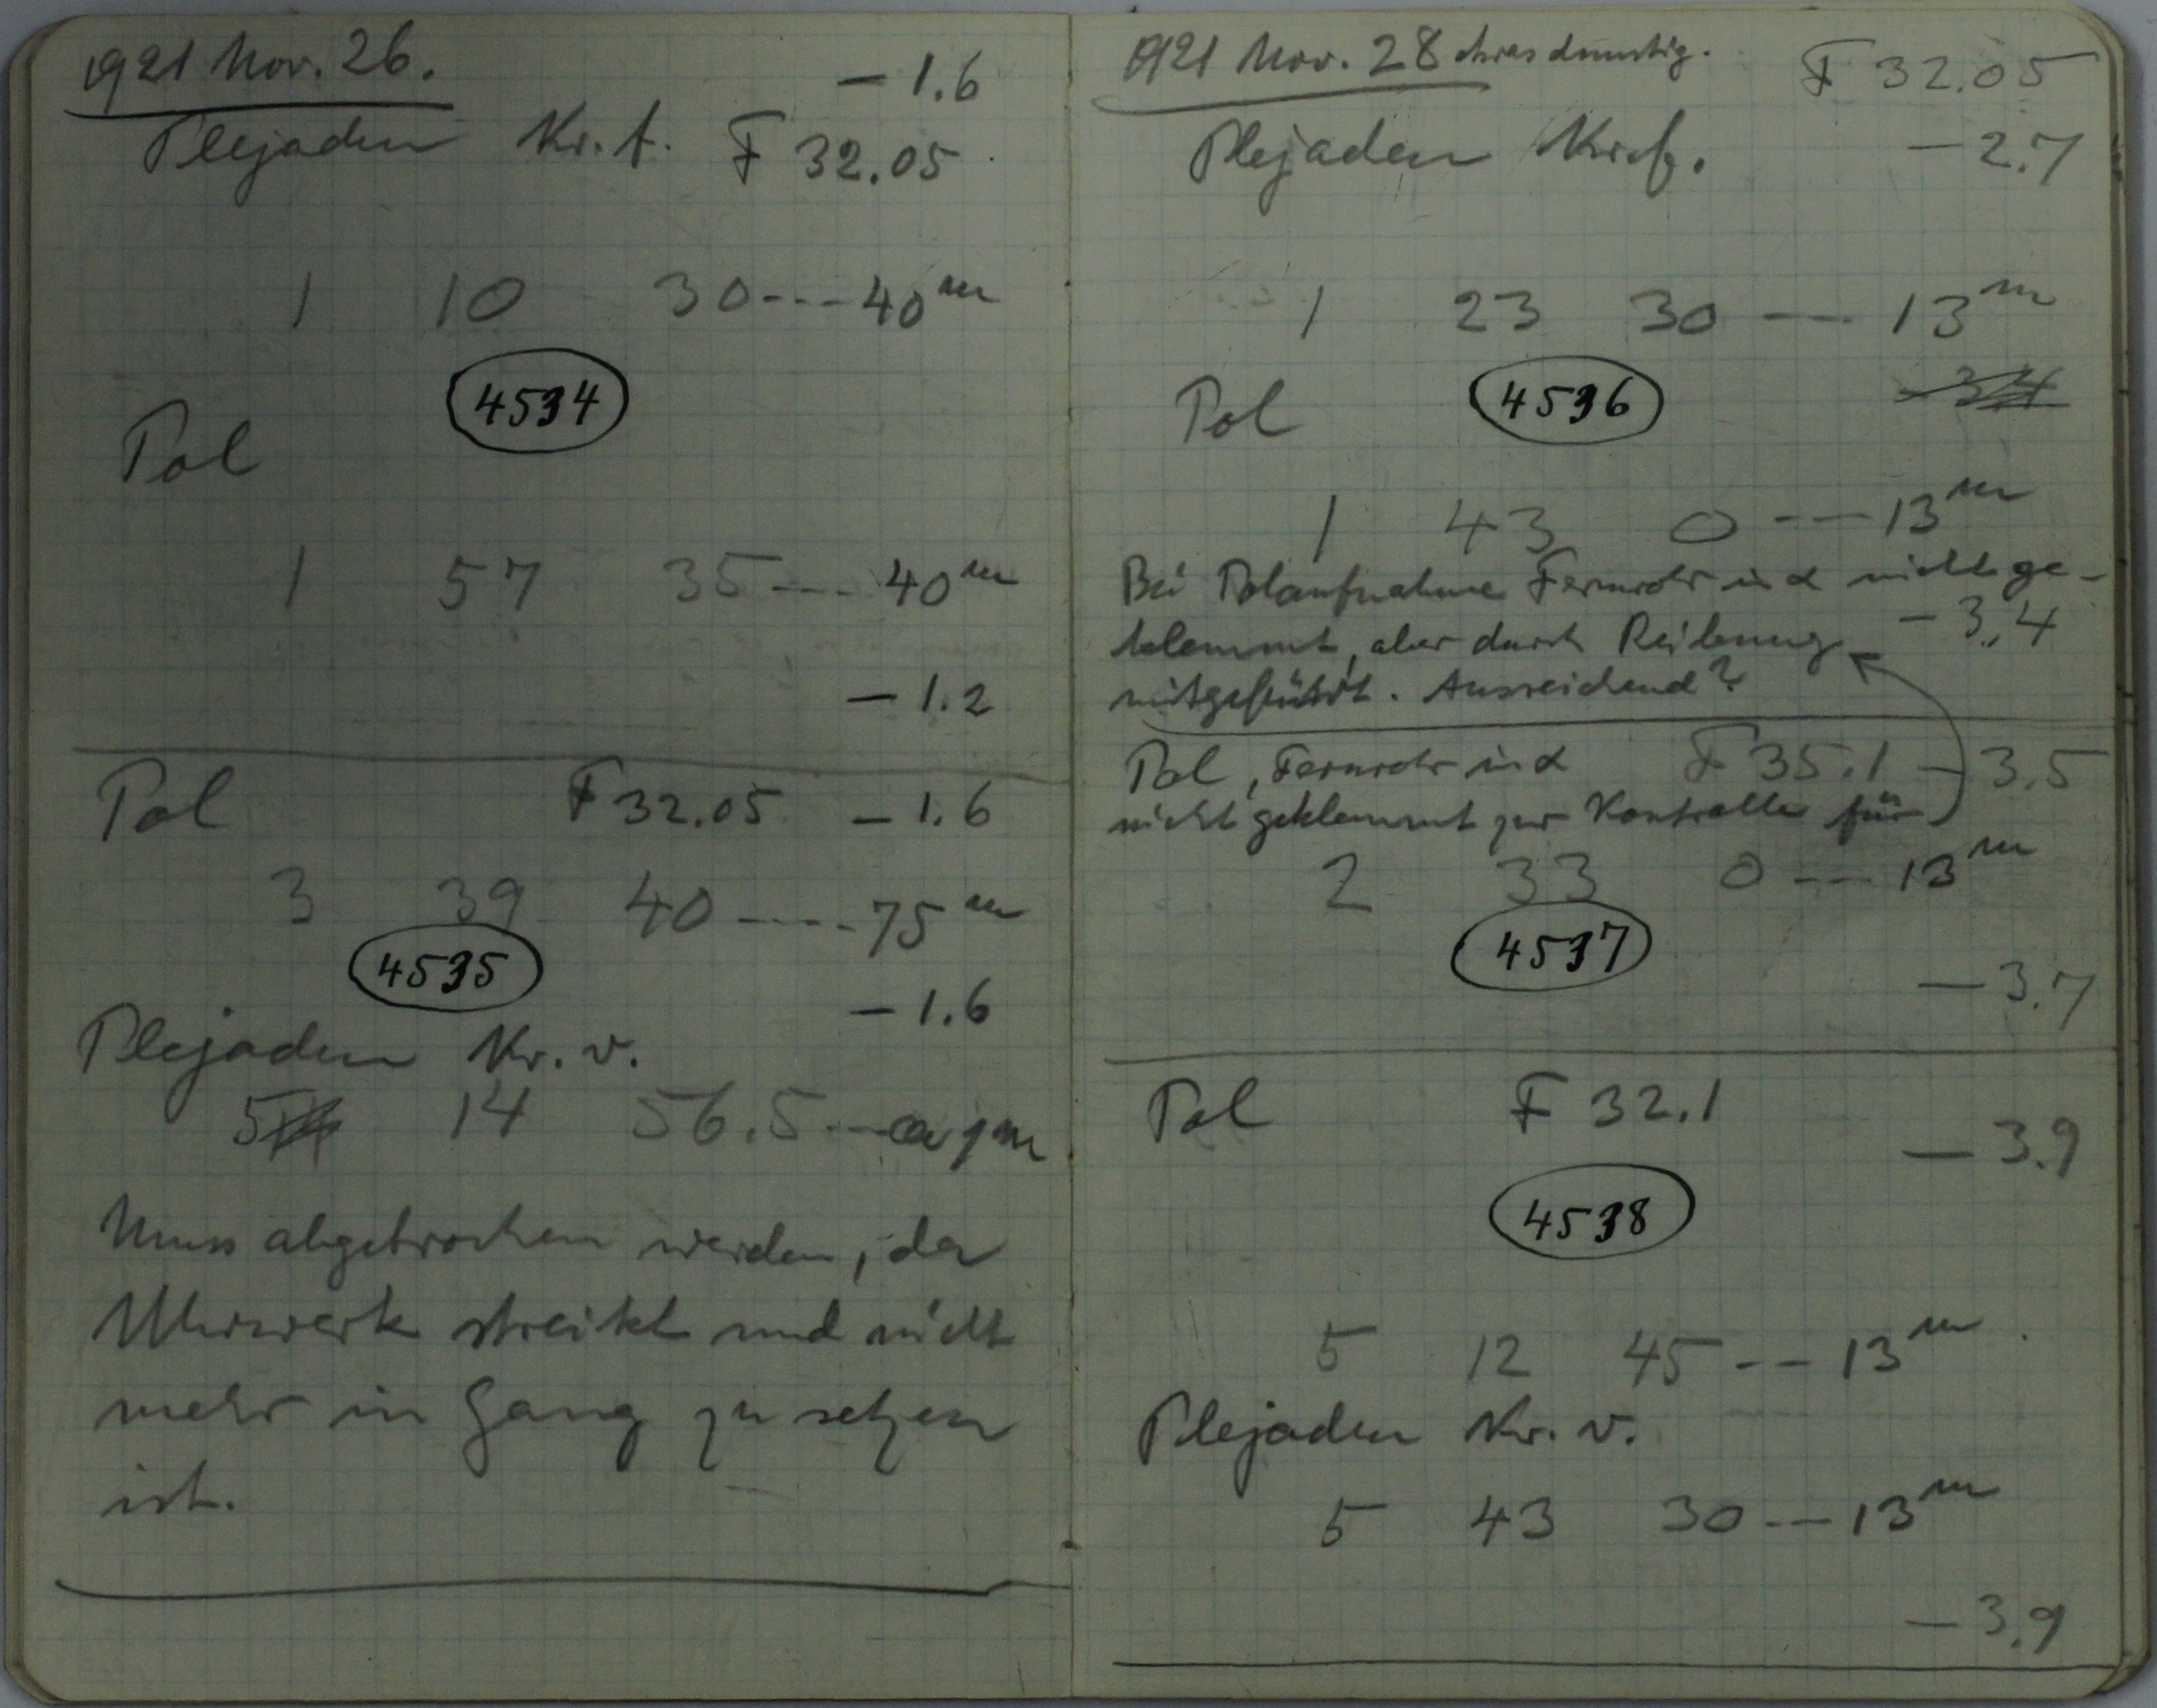 1921 Nov. 26.
- 1.6
Plejaden Kr. f. F 32.05
1 10 30---40 m
4534
Pol
1 57 35---40 m
- 1.2
Pol F 32.05 - 1.6
3 39 40----75 m
4535
- 1.6
Plejaden Kr. v.
5 14 56.5---
Muss abgebrochen werden, da
Uhrwerk streikt und nicht
mehr in Gang zu setzen
ist.
1921 Nov. 28 etwas dunstig.
F 32.05
Plejaden Kr. f. - 2.7
1 23 30 --- 13 m
Pol 4536 - 3.4
1 43 0 --- 13 m
Bei Polaufnahme Fernrohr in α nicht ge-
klemmt, aber durch Reibung - 3.4
mitgeführt. Ausreichend?
Pol, Fernrohr in α F 35.1 - 3.5
nicht geklemmt zur Kontrolle für
2 33 0 --- 13 m
4537
- 3.7
Pol F 32.1
- 3.9
4538
5 12 45 --- 13 m
Plejaden Kr. v.
5 43 30 --- 13 m
- 3.9